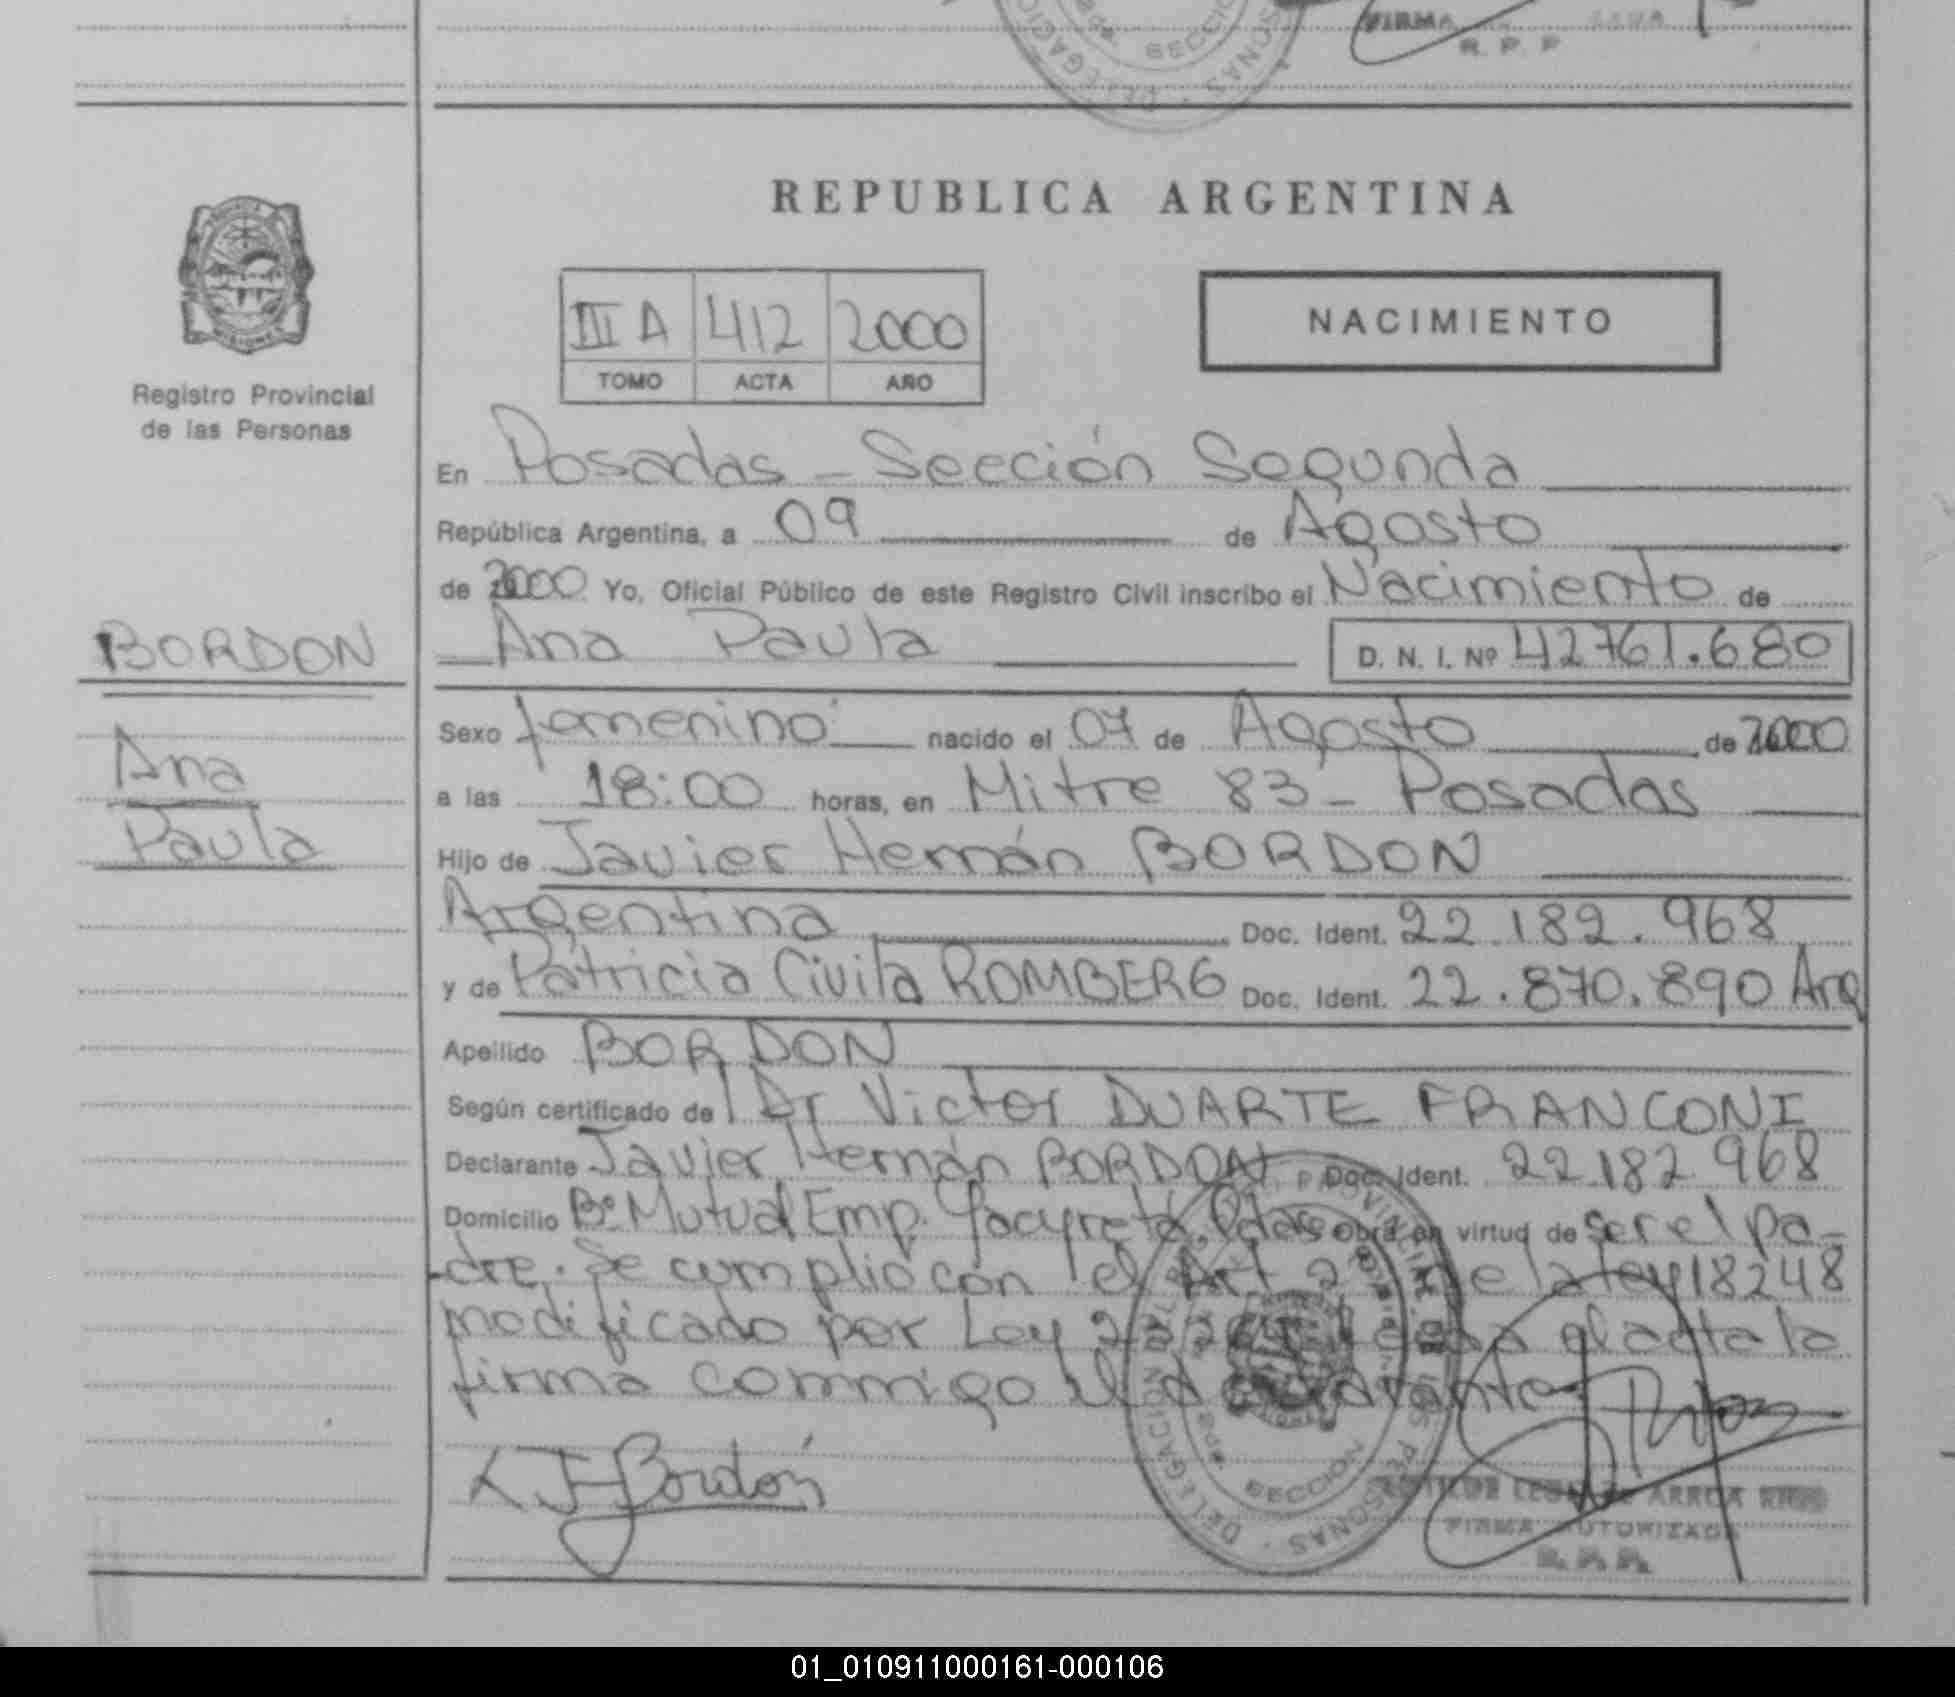 FIRMA
R. P. P
SECCIO
REPUBLICA ARGENTINA
III A 412 2000
TOMO ACTA AÑO
NACIMIENTO
Registro Provincial
de las Personas
BORDON
Ana
Paula
En Posadas - Sección Segunda
República Argentina, a 09 de Agosto
de 2000 Yo, Oficial Público de este Registro Civil inscribo el Nacimiento de
Ana Paula D. N. I. Nº 42761.680
Sexo femenino nacido el 07 de Agosto de 2000
a las 18:00 horas, en Mitre 83 - Posadas
Hijo de Javier Hernán BORDON
Argentina Doc. Ident. 22.182.968
y de Patricia Civila ROMBERG Doc. Ident. 22.870.890 Arg
Apellido BORDON
Según certificado de Dr Victor DUARTE FRANCONI
Declarante Javier Hernán BORDON Doc. Ident. 22.182.968
Domicilio Bº Mutual Emp. Yacyretá, Pdas Obra en virtud de ser el pa-
dre. Se cumplió con el Art 2 de la ley 18248
modificado por Ley leída el acta la
firma conmigo el declarante
J H Bordón
DELEGACION
SECCION
PERSONAS
FIRMA AUTORIZADA
R. P. P.
01_010911000161-000106